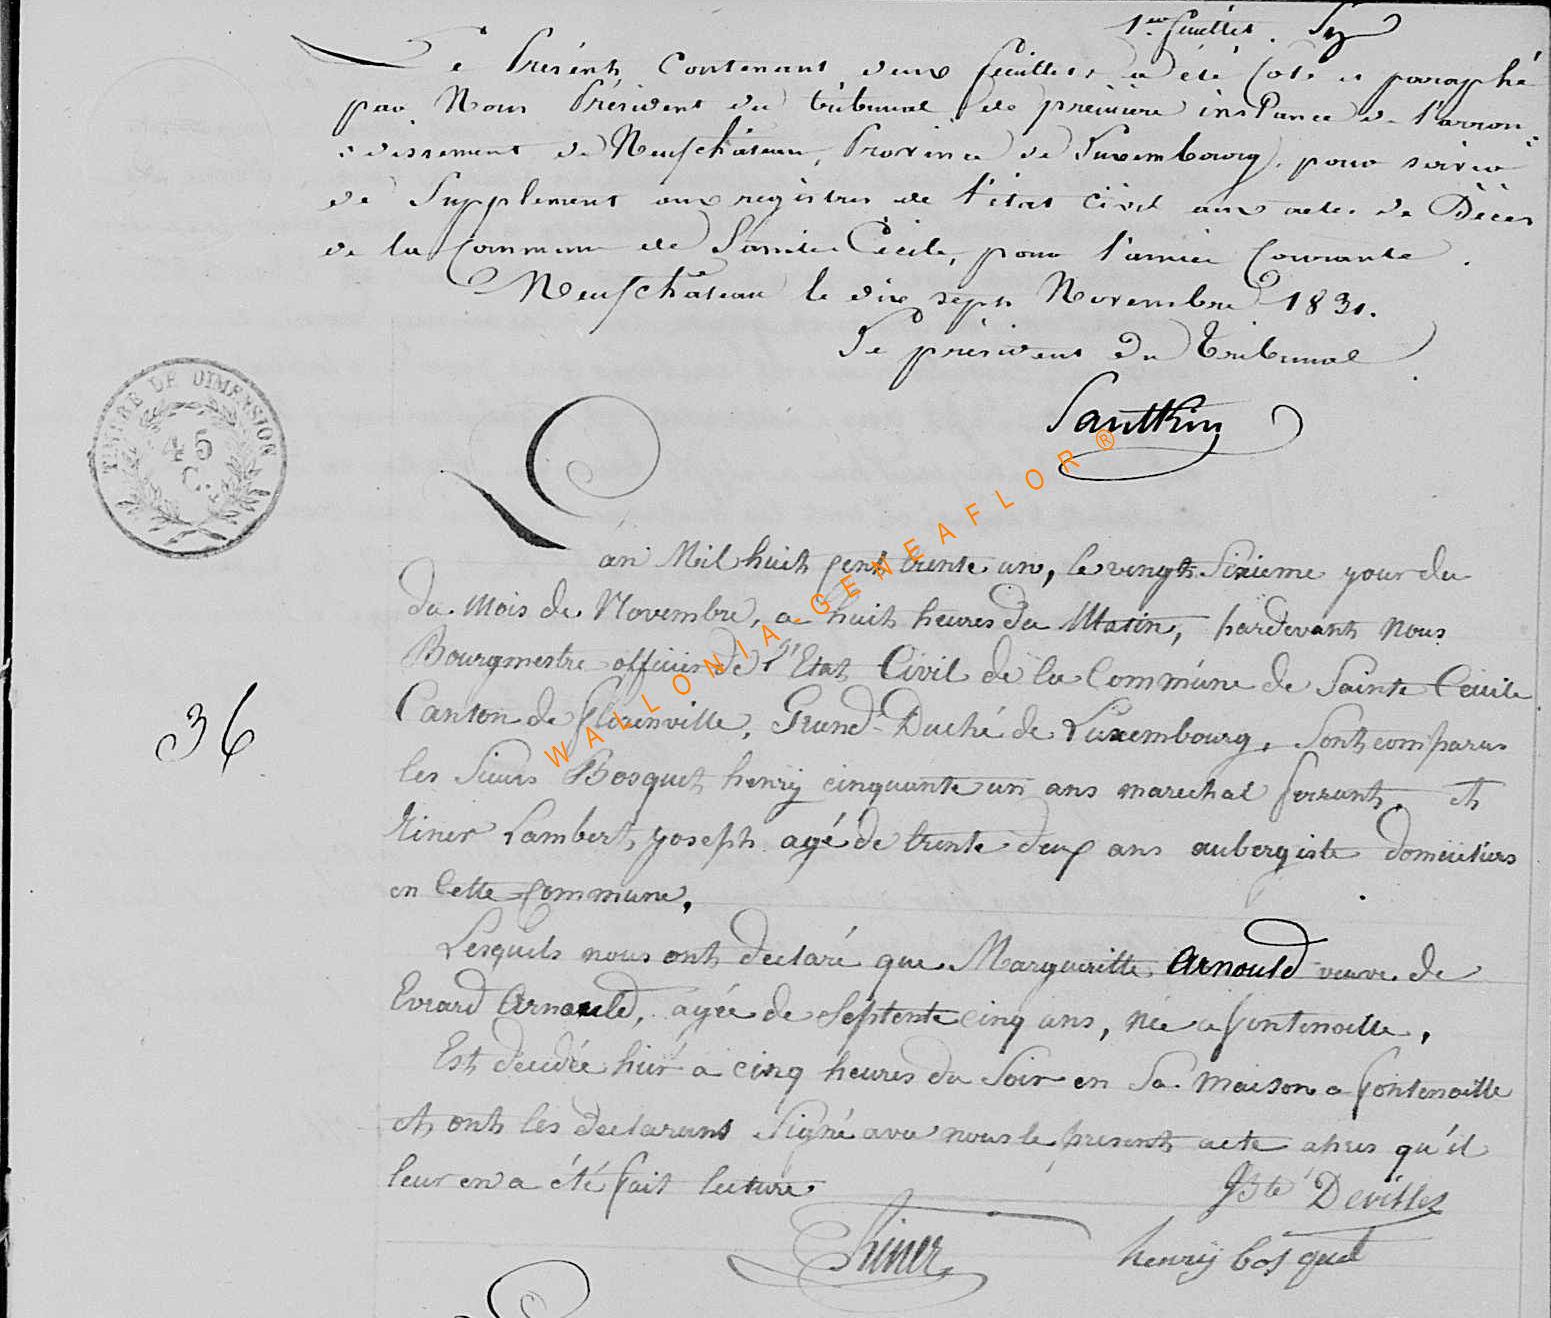 1er feuillet.
Le Présent Contenant deux feuillets a été Coté et paraphé
par Nous Président du tribunal de première instance de l'arron-
-dissement de Neufchâteau, Province de Luxembourg, pour servir
de Supplement aux registres de l'état civil aux actes de Décès
de la Commune de Sainte Cécile, pour l'année Courante.
Neufchâteau le dix sept Novembre 1831.
Le président du Tribunal
Sautkin
TIMBRE DE DIMENSION
45
C.
L'an Mil huit Cent trente un, le vingt Sixieme jour du
du Mois de Novembre, a huit heures du Matin, pardevant Nous
Bourgmestre officier de l'Etat Civil de la Commune de Sainte Cecile
Canton de florenville, Grand-Duché de Luxembourg, Sont comparus
les Sieurs Bosquet henry cinquante un ans marechal ferrant, et
Lambert yoseph agé de trente deux ans aubergiste domicilies
en Cette Commune,
36
Lesquels nous ont declaré que Margueritte Arnould veuve de
Evrard Arnould, agée de Septente cinq ans, née a fontenoille,
Est decedée hier a cinq heures du Soir en Sa Maison a fontenoille
et ont les declarants Signé avec nous le present acte apres qu'il
leur en a été fait lecture
Jbte Devillez
henry bosquet
WALLONIA-GENEAFLOR®